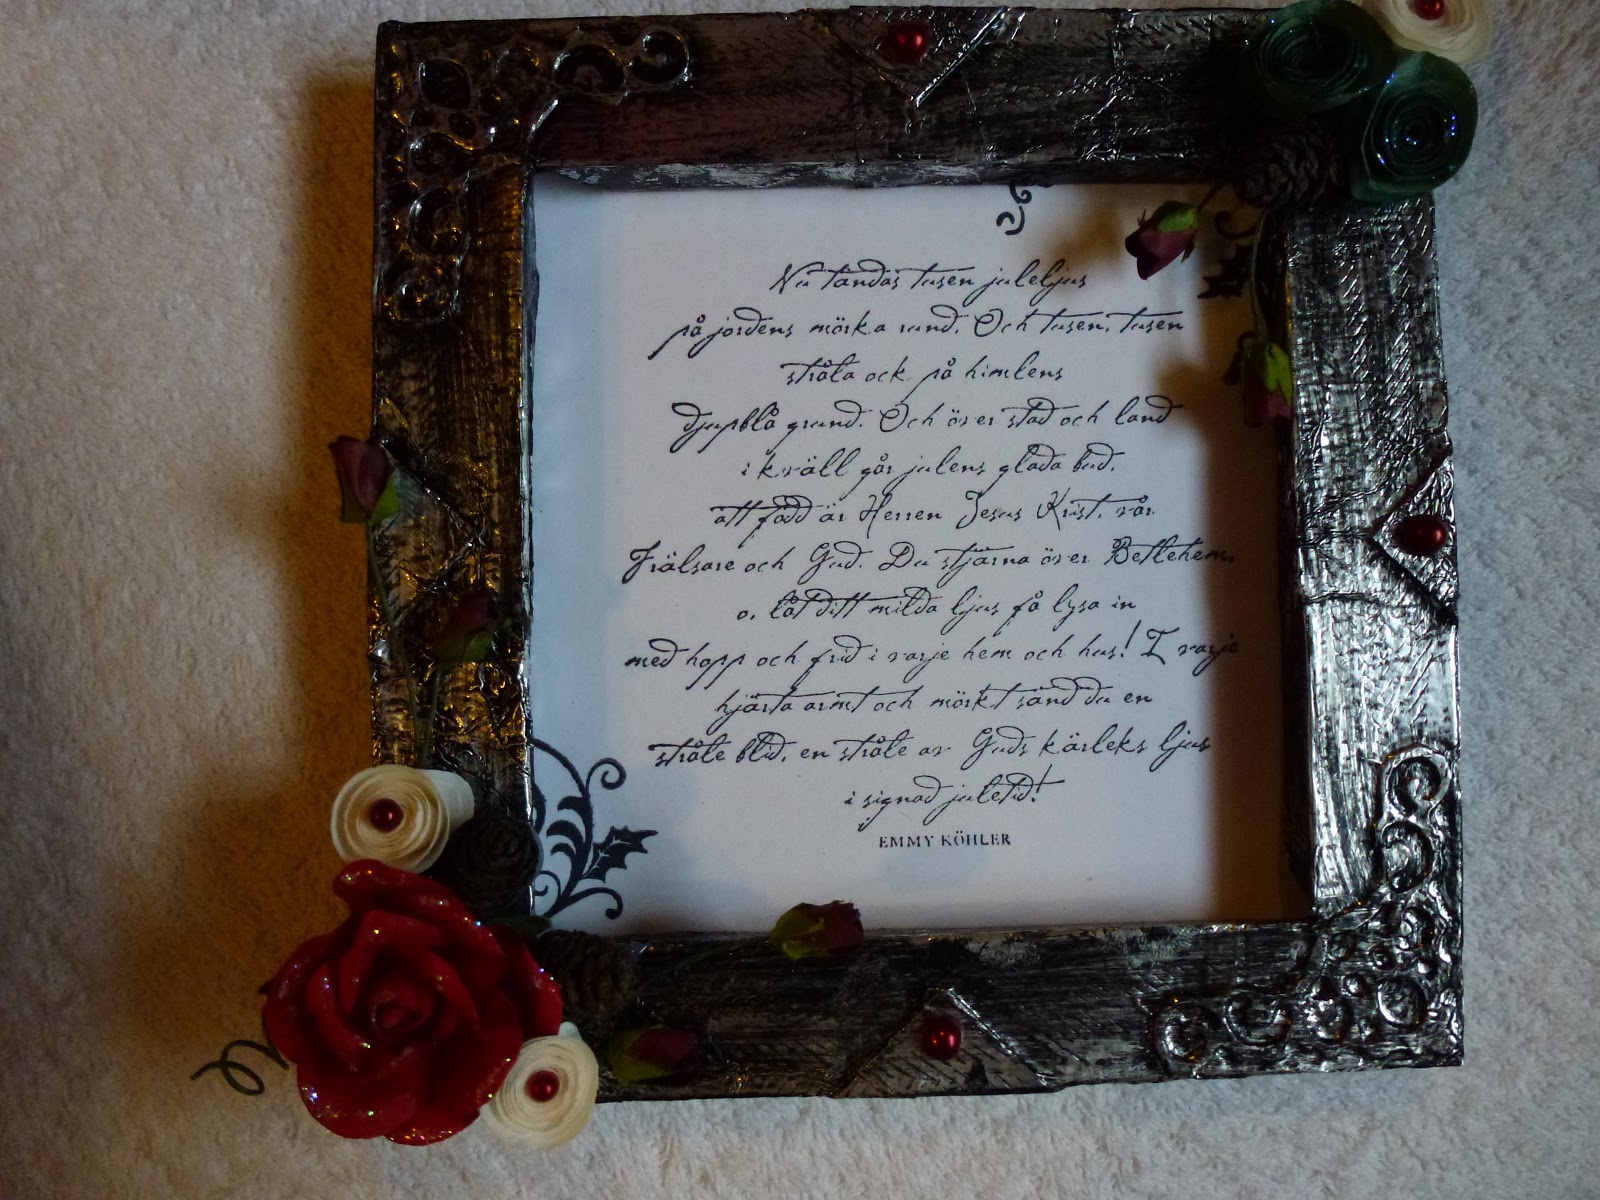 Nu tändas tusen juleljus
på jordens mörka rund. Och tusen, tusen
stråla ock på himlens
djupblå grund. Och över stad och land
i kväll går julens glada bud,
att född är Herren Jesus Krist, vår
Frälsare och Gud. Du stjärna över Betlehem,
o, låt ditt milda ljus få lysa in
med hopp och frid i varje hem och hus! I varje
hjärta armt och mörkt sänd du en
stråle blid, en stråle av Guds kärleks ljus
i signad juletid!
EMMY KÖHLER